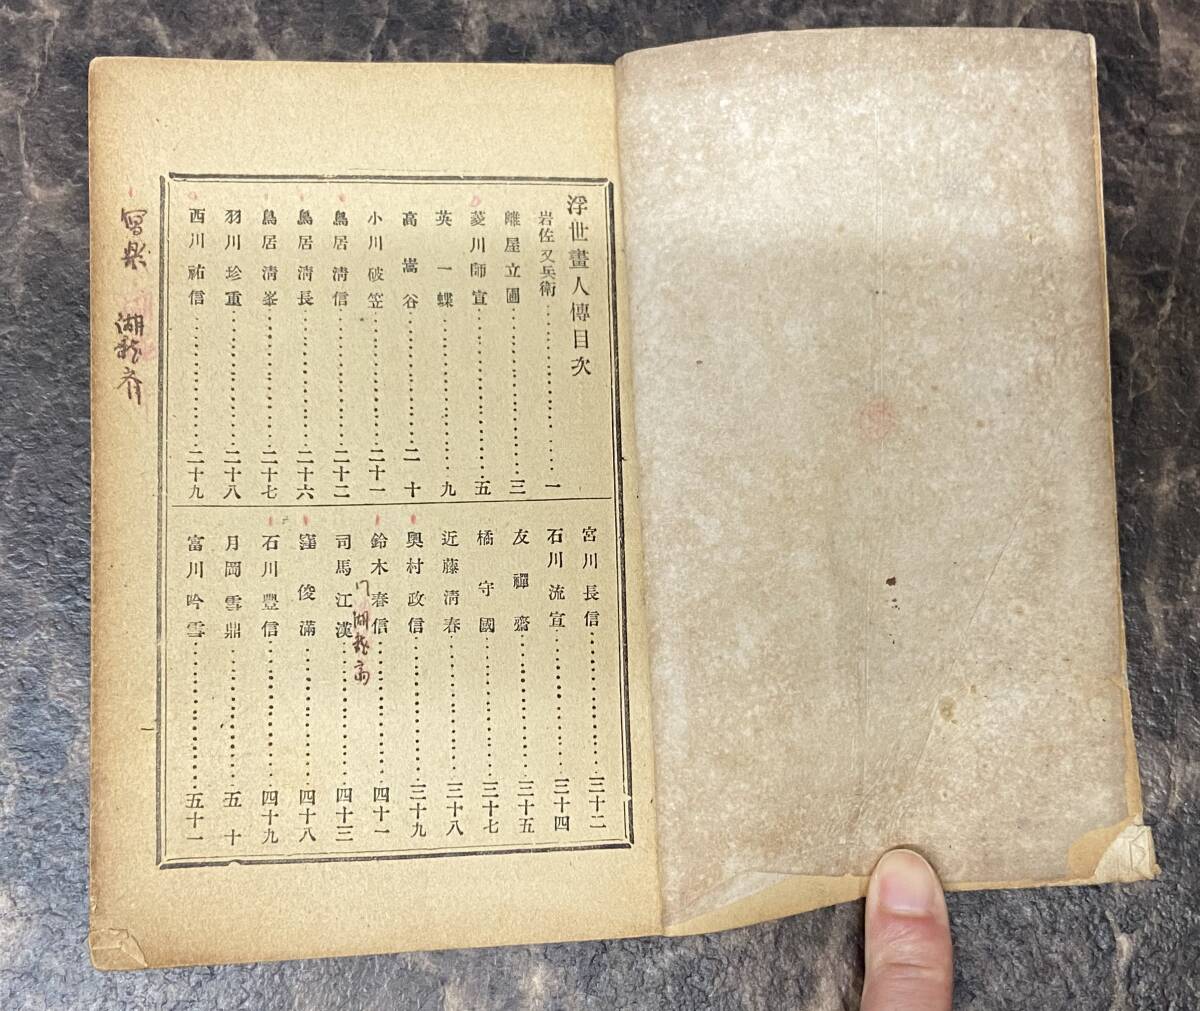 浮世畫人傳目次
岩佐又兵衛…………一
雛屋立圃…………三
菱川師宣…………五
英一蝶…………九
高嵩谷…………二十
小川破笠…………二十一
鳥居淸信…………二十二
鳥居淸長…………二十六
鳥居淸峯…………二十七
羽川珍重…………二十八
西川祐信…………二十九
宮川長信…………三十二
石川流宣…………三十四
友禪齋…………三十五
橘守國…………三十七
近藤淸春…………三十八
奧村政信…………三十九
鈴木春信…………四十一
湖龍斎
司馬江漢…………四十三
窪俊滿…………四十八
石川豐信…………四十九
月岡雪鼎…………五十
富川吟雪…………五十一
一
寫樂
湖龍斉